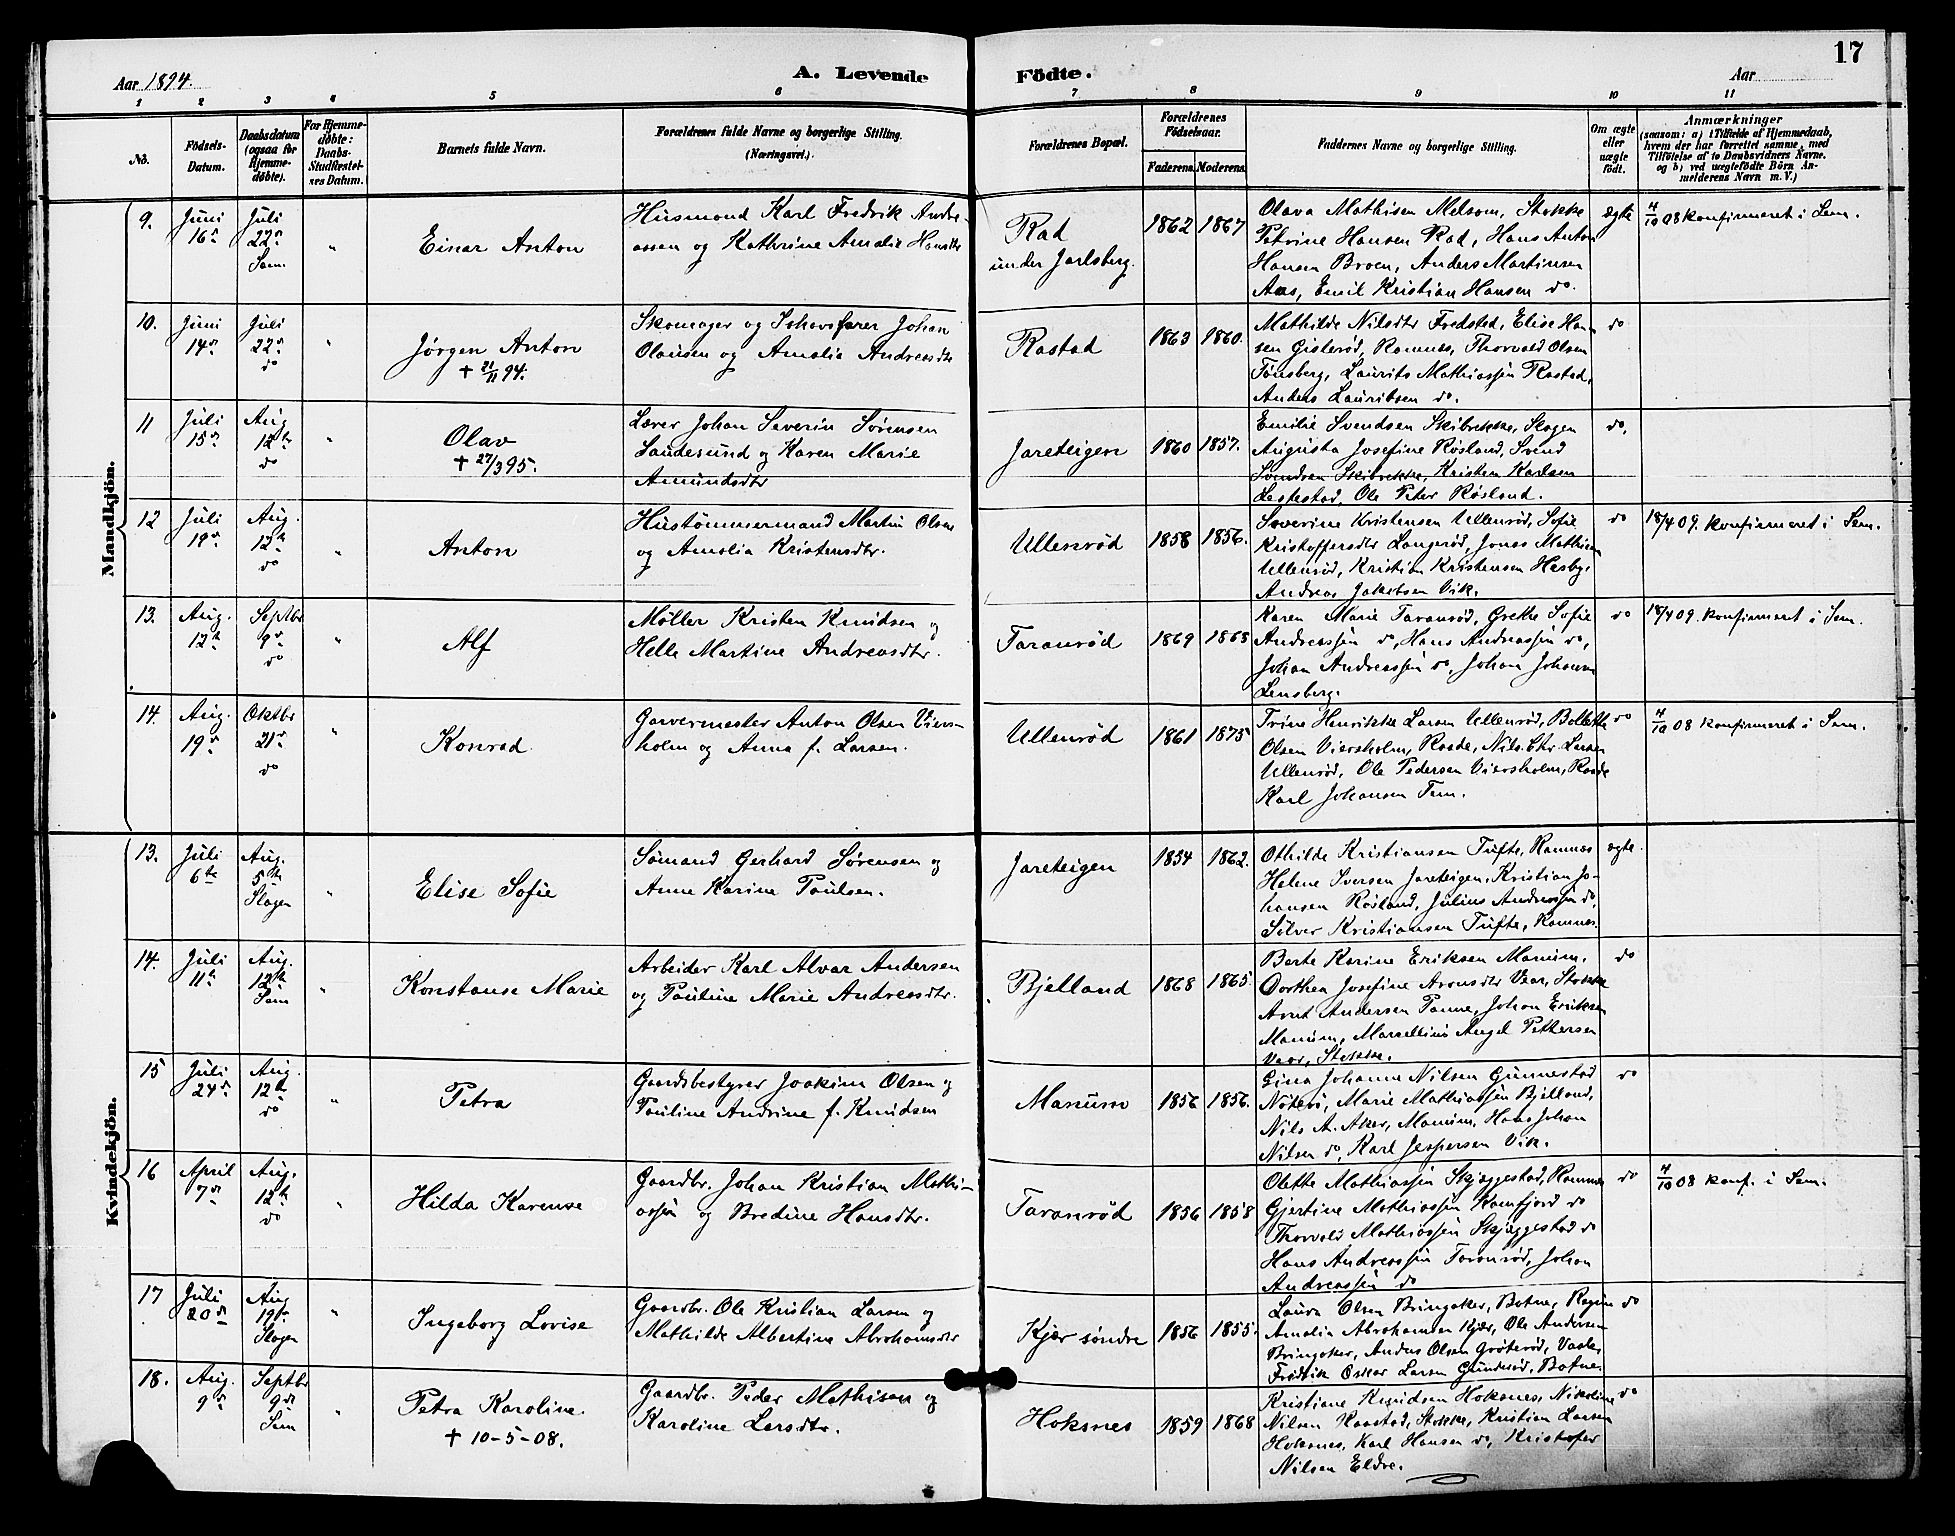 17
Aar 1894.
A. Levende
Födte.
Aar
1 2 3 4 5 6 7 8 9 10 11
No.
Födsels-
Datum.
Daabsdatum
(ogsaa for
Hjemme-
døbte).
For Hjemme-
døbte:
Daabs-
Stadfæstel-
ses Datum.
Barnets fulde Navn.
Forældrenes fulde Navne og borgerlige Stilling.
(Næringsvei.)
Forældrenes Bopæl.
Forældrenes
Födselsaar.
Faderens. Moderens.
Faddernes Navne og borgerlige Stilling.
Om ægte
eller
uægte
födt.
Anmærkninger
(saasom: a) i Tilfælde af Hjemmedaab,
hvem der har forrettet samme, med
Tilföielse af to Daabsvidners Navne.
og b) ved uægtefödte Börn An-
melderens Navn m. V.)
Mandkjön.
9.
Juni
16de
Juli
22de
Sem.
"
Einar Anton
Husmand Karl Fredrik Andre-
assen og Kathrine Amalie Hansdtr
Rad
under Jarlsberg.
1862 1867
Olava Mathisen Melsom, Stokke
Petrine Hansen Rad, Hans Anton
Hansen Broen, Anders Martinsen
Aas, Emil Kristian Hansen do.
ægte
4/10 08 konfirmeret i Sem.
10.
Juni
14de
Juli
22de
do
"
Jørgen Anton
† 21/11 94.
Skomager og Ishavsfarer Johan
Olausen og Amalia Andreasdtr
Rastad
1863 1860.
Mathilde Nilsdtr Fredsted, Elise Han-
sen Gisterød, Ramnes, Thorvald Olsen
Tønsberg, Laurits Mathiassen Rastad,
Anders Lauritsen do.
do
11
Juli
15de
Aug
12te
do
"
Olav
† 27/3 95.
Lærer Johan Severin Sørensen
Sandesund og Karen Marie
Amundsdtr
Jareteigen
1860 1857.
Emilie Svendsen Skibrekke, Slagen
Augusta Josefine Røsland, Svend
Svendsen Skibrekke, Kristen Karlsen
Lestestad, Ole Peter Røsland.
do.
12
Juli
19de
Aug.
12te
do
"
Anton
Hustømmermand Martin Olsen
og Amalia Kristensdtr.
Ullenrød
1858 1856.
Severine Kristensen Ullenrød, Sofie
Kristoffersdtr Langerød, Jonas Mathisen
Ullenrød, Kristian Kristensen Hesby,
Andreas Jakobsen Vik.
do
18/4 09. konfirmeret i Sem.
13.
Aug.
12te
Septbr
9de
do
"
Alf
Møller Kristen Knudsen og
Helle Martine Andreasdtr.
Taranrød
1869 1865
Karen Marie Taranrød, Grethe Sofie
Andreassen do, Hans Andreassen do,
Johan Andreassen do, Johan Johansen
Lensberg.
do
18/4 09. konfirmeret i Sem.
14.
Aug.
19de
Oktbr
21de
do
"
Konrad
Garvermester Anton Olsen Viers-
holm og Anna f. Larsen.
Ullenrød
1861 1875
Trine Henrikke Larsen Ullenrød, Bolette
Olsen Viersholm, Raade, Nils Chr. Larsen
Ullenrød, Ole Pedersen Viersholm, Raade
Karl Johansen Fem.
do
4/10 08 konfirmeret i Sem.
Kvindekjön.
13.
Juli
6te
Aug.
5te
Slagen
"
Elise Sofie
Sømand Gerhard Sørensen og
Anne Karine Paulsen.
Jareteigen
1854 1862.
Othilde Kristiansen Tufte, Ramnes
Helene Iversen Jareteigen, Kristian Jo-
hansen Røsland, Julius Andreassen do,
Silver Kristiansen Tufte, Ramnes.
ægte.
14.
Juli
11te
Aug.
12te
Sem
"
Konstanse Marie
Arbeider Karl Alvar Andersen
og Pauline Marie Andreasdtr.
Bjelland
1868 1865.
Berte Karine Eriksen Manum,
Dorthea Josefine Aronsdtr Vear, Stokke
Arnt Andersen Tanne, Johan Eriksen
Manum, Marcellius Angel Pettersen
Vear, Stokke.
do
15
Juli
24de
Aug.
12te
do
"
Petra
Gaardsbestyrer Joakim Olsen og
Pauline Andrine f. Knudsen
Manum
1856 1856.
Gina Johanne Nilsen Gunnestad
Nøterø, Marie Mathiassen Bjelland,
Nils A. Aker, Manum, Hans Johan
Nilsen do, Karl Jespersen Vik.
do
16
April
7de
Aug.
12te
do
"
Hilda Karense
Gaardbr. Johan Kristian Mathi-
assen og Bredine Hansdtr.
Taranrød
1856 1858
Olette Mathiassen Skjæggestad, Ramnes
Gjertine Mathiassen Kamfjord do
Thorvald Mathiassen Skjæggestad do
Hans Andreassen Taranrød, Johan
Andreassen do
do
4/10 08 konf. i Sem.
17
Juli
20de
Aug
19de
Slagen
"
Ingeborg Lovise
Gaardbr. Ole Kristian Larsen og
Mathilde Albertine Abrahamsdtr
Kjær søndre
1856 1855.
Laura Olsen Bringaker, Botne, Ragna
Amalia Abrahamsen Kjær, Ole Andersen
Bringaker, Anders Olsen Grøterød, Vaale,
Fredrik Oskar Larsen Gunderød, Botne.
do
18.
Aug.
9de
Septbr
9de
Sem
"
Petra Karoline.
† 10-5-08.
Gaardbr. Peder Mathisen og
Karoline Larsdtr.
Hoksnes
1859 1868
Kristiane Knudsen Hoksnes, Nikoline
Nilsen Raastad, Stokke, Kristian Larsen
Hoksnes, Karl Hansen do, Kristofer
Nilsen Eldre.
do